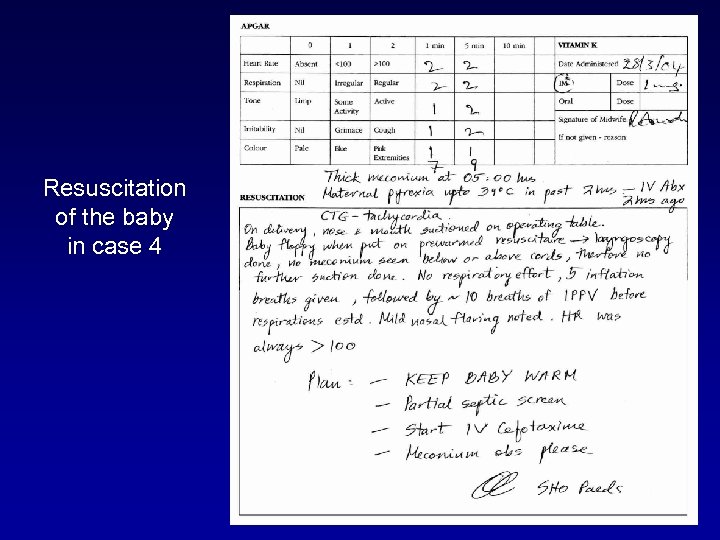 Resuscitation
of the baby
in case 4
APGAR
0 1 2 1 min 5 min 10 min VITAMIN K
Heart Rate Absent <100 ≥100 2 2 Date Administered 28/3/04
Respiration Nil Irregular Regular 2 2 IM Dose 1 mg.
Tone Limp Some Activity Active 1 2 Oral Dose
Signature of Midwife
Irritability Nil Grimace Cough 1 2 If not given - reason
Colour Pale Blue Pink Extremities 1 1
7 9
Thick meconium at 05:00 hrs
Maternal pyrexia upto 39°C in past 2 hrs – IV Abx
2 hrs ago
RESUSCITATION
CTG – tachycardia.
On delivery, nose & mouth suctioned on operating table.
Baby floppy when put on prewarmed resuscitaire → laryngoscopy
done, no meconium seen below or above cords, therefore no
further suction done. No respiratory effort, 5 inflation
breaths given, followed by ~ 10 breaths of IPPV before
respirations estd. Mild nasal flaring noted. HR was
always > 100
Plan: – KEEP BABY WARM
– Partial septic screen
– Start IV Cefotaxime
– Meconium obs please.
SHO Paeds